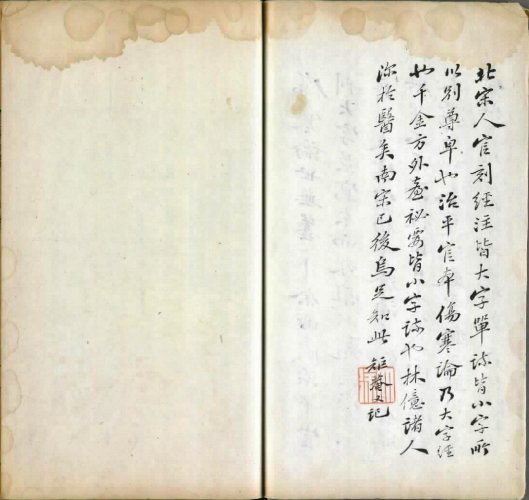 北宋人官刻經注皆大字單疏皆小字所
以別尊卑也治平官本傷寒論乃大字經
也千金方外臺祕要皆小字疏也林億諸人
深於醫矣南宋已後烏足知此 矩菴又記